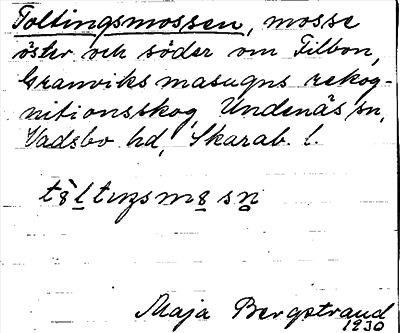 Toltingsmossen, mosse
öster och söder om Filbon,
Granviks masugns rekog-
nitionsskog, Undenäs sn,
Vadsbo hd, Skarab. l.
Maja Bergstrand
1930